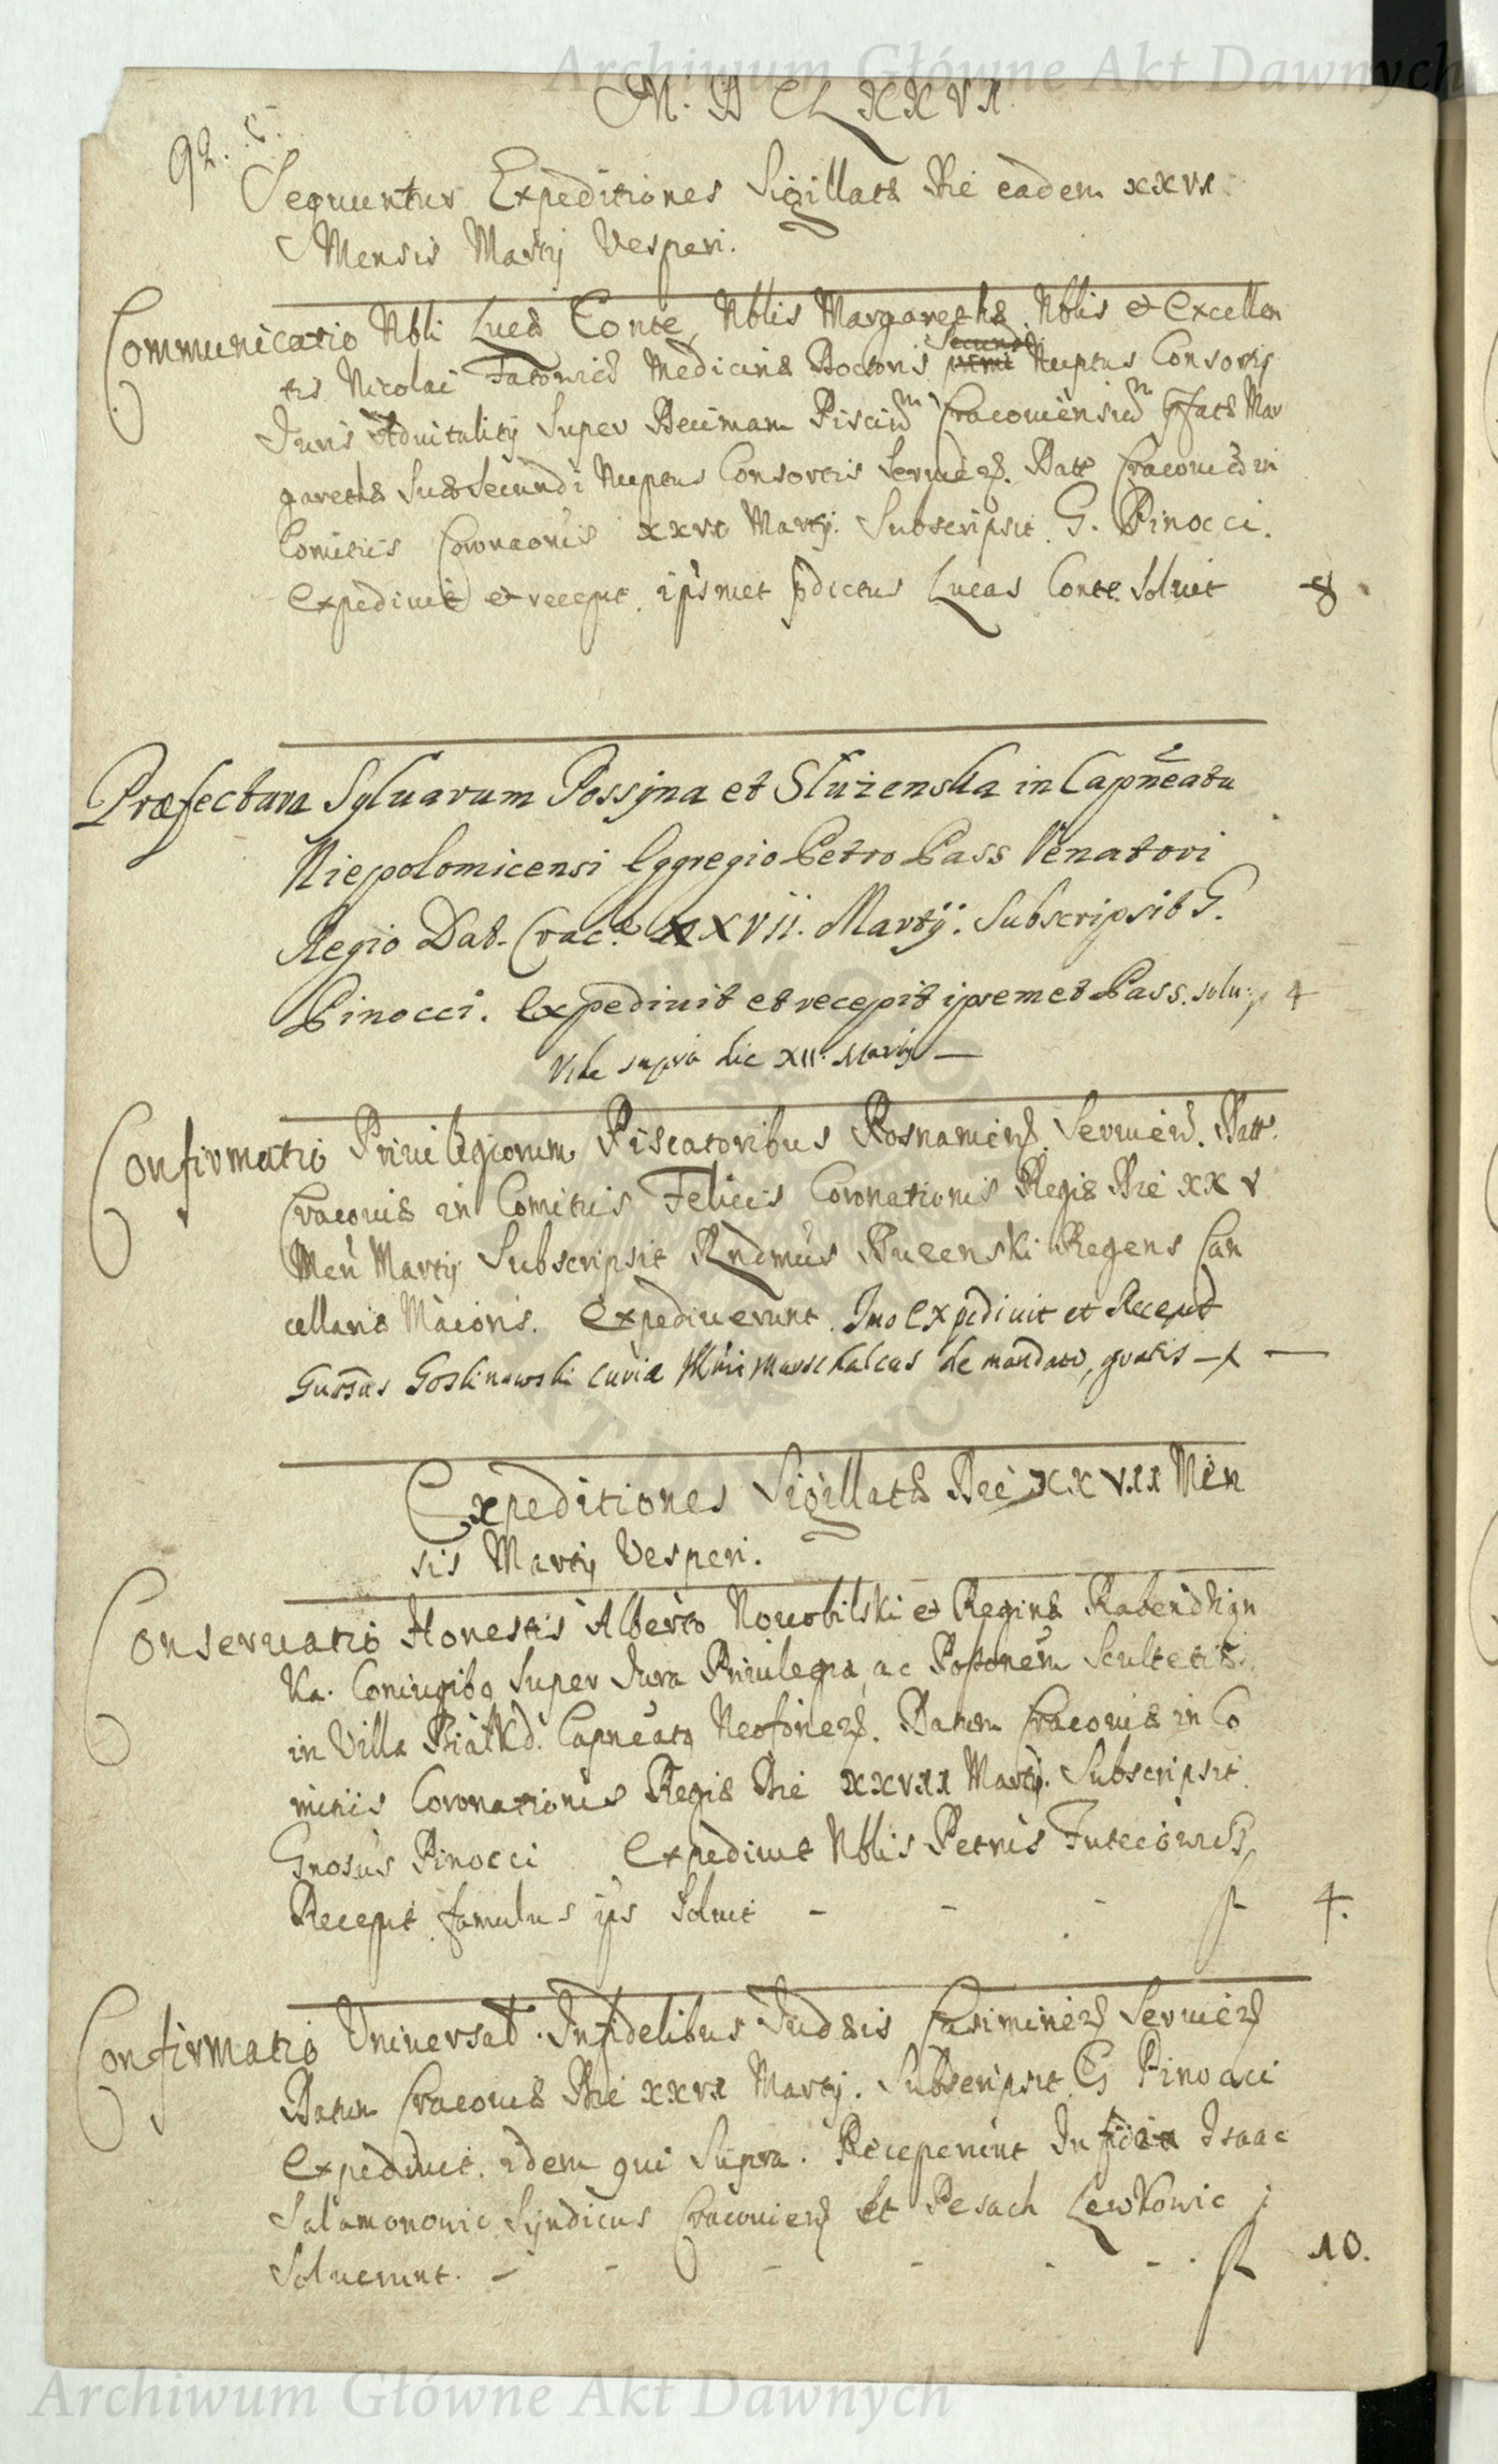 Archiwum Główne Akt Dawnych
M. D C L X X V I.
92.
Sequuntur Expeditiones Sigillatæ Die eadem xxvi.
Mensis Martij Vesperi.
Communicatio Nbli Lucæ Conte, Nblis Margarethæ Nblis et Excellen
tis Nicolai Fatowicz Medicinæ Doctoris Secundi primi Nuptus Consortis
Juris Advitalitij Super Decimam Pisciūm Cracoviensiūm pfatæ Mar
garethæ Suæ Secundi Nuptus Consortis Serviēs. Datt Cracoviæ in
Comitiis Coronaōnis xxvi Martij. Subscripsit G. Pinocci.
Expedivit et recepit ipsmet pdictus Lucas Conte Solvit 8
Præfectura Sylvarum Possyna et Służenska in Capnēatu
Niepolomicensi Eggregio Petro Pass Venatori
Regio Dat. Crac. XXVII. Martij. Subscripsit G.
Pinocci. Expedivit et recepit ipsemet Pass. solv: 4
Vide supra die XII. Martij —
Confirmatio Privilegiorum Piscatoribus Posnanien. Servien. Datt.
Cracoviæ in Comitiis Felicis Coronationis Regiæ Die XX V
Men Martij Subscripsit Rndmus Buzenski Regens Can
cellariæ Maioris. Expediverunt. Imo Expedivit et Recepit
Goslinowski Curiæ Marschalcus de mandato, gratis — —
Expeditiones Sigillatæ Die XXVII Men
sis Martij Vesperi.
Conservatio Honestis Alberto Nowobilski et Reginæ
Ka. Coniugibq Super Jura Privilegia, ac Posonēm Scultetiæ
in Villa Białka. Capnēatq Neoforien. Datum Cracoviæ in Co
mitiis Coronationis Regiæ Die XXVII Martij. Subscripsit
Gnosus Pinocci Expedivit Nblis Petrus
Recepit famulus ips Solvit - - - fl 4.
Confirmatio Universal. Infidelibus Judæis Casimirien Servien
Datum Cracoviæ Die xxvi Martij. Subscripsit G Pinocci
Expedivit. idem qui Supra. Receperunt Isaac
Salamonowic Syndicus Cracovien et Pesach Lewkowic
Solverunt. - - - - - - fl 10.
Archiwum Główne Akt Dawnych